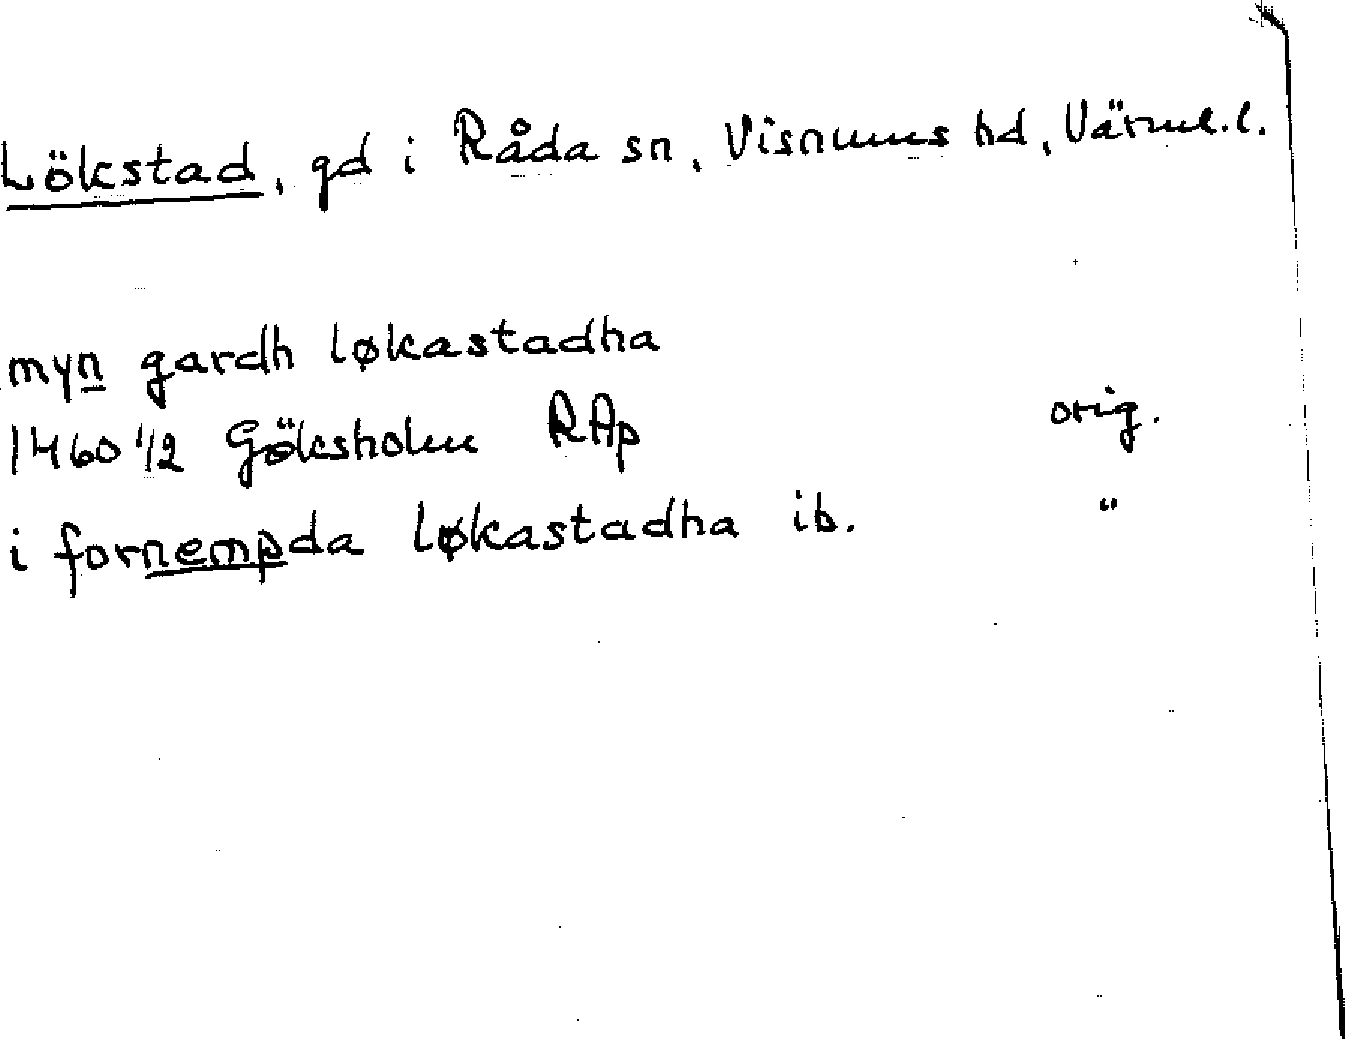 Lökstad, gd i Råda sn, Visnums hd, Värml.l.
myn gardh løkastadha
1460 1/2 Göksholm RAp orig.
i fornempda løkastadha ib. "